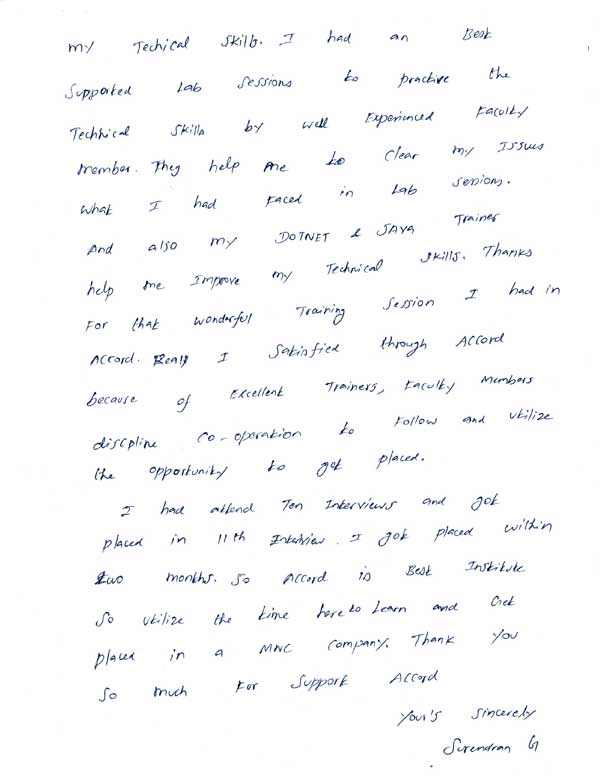 my Techical Skills. I had an Best
Supported Lab Sessions to practive the
Technical Skills by well Experienced Faculty
Member. They help me to clear my Issues
what I had Faced in Lab sessions.
And also my DOTNET & JAVA Trainer
help me Improve my Technical skills. Thanks
For that wonderful Training Session I had in
Accord. Really I Satisfied through Accord
because of Excellent Trainers, Faculty Members
discpline co-operation to Follow and utilize
the opportunity to get placed.
I had attend Ten Interviews and got
placed in 11th Interview. I got placed within
two months. So Accord is Best Institute
So utilize the time here to Learn and Get
placed in a MNC Company. Thank you
So much For Support Accord
Your's Sincerely
Surendran G